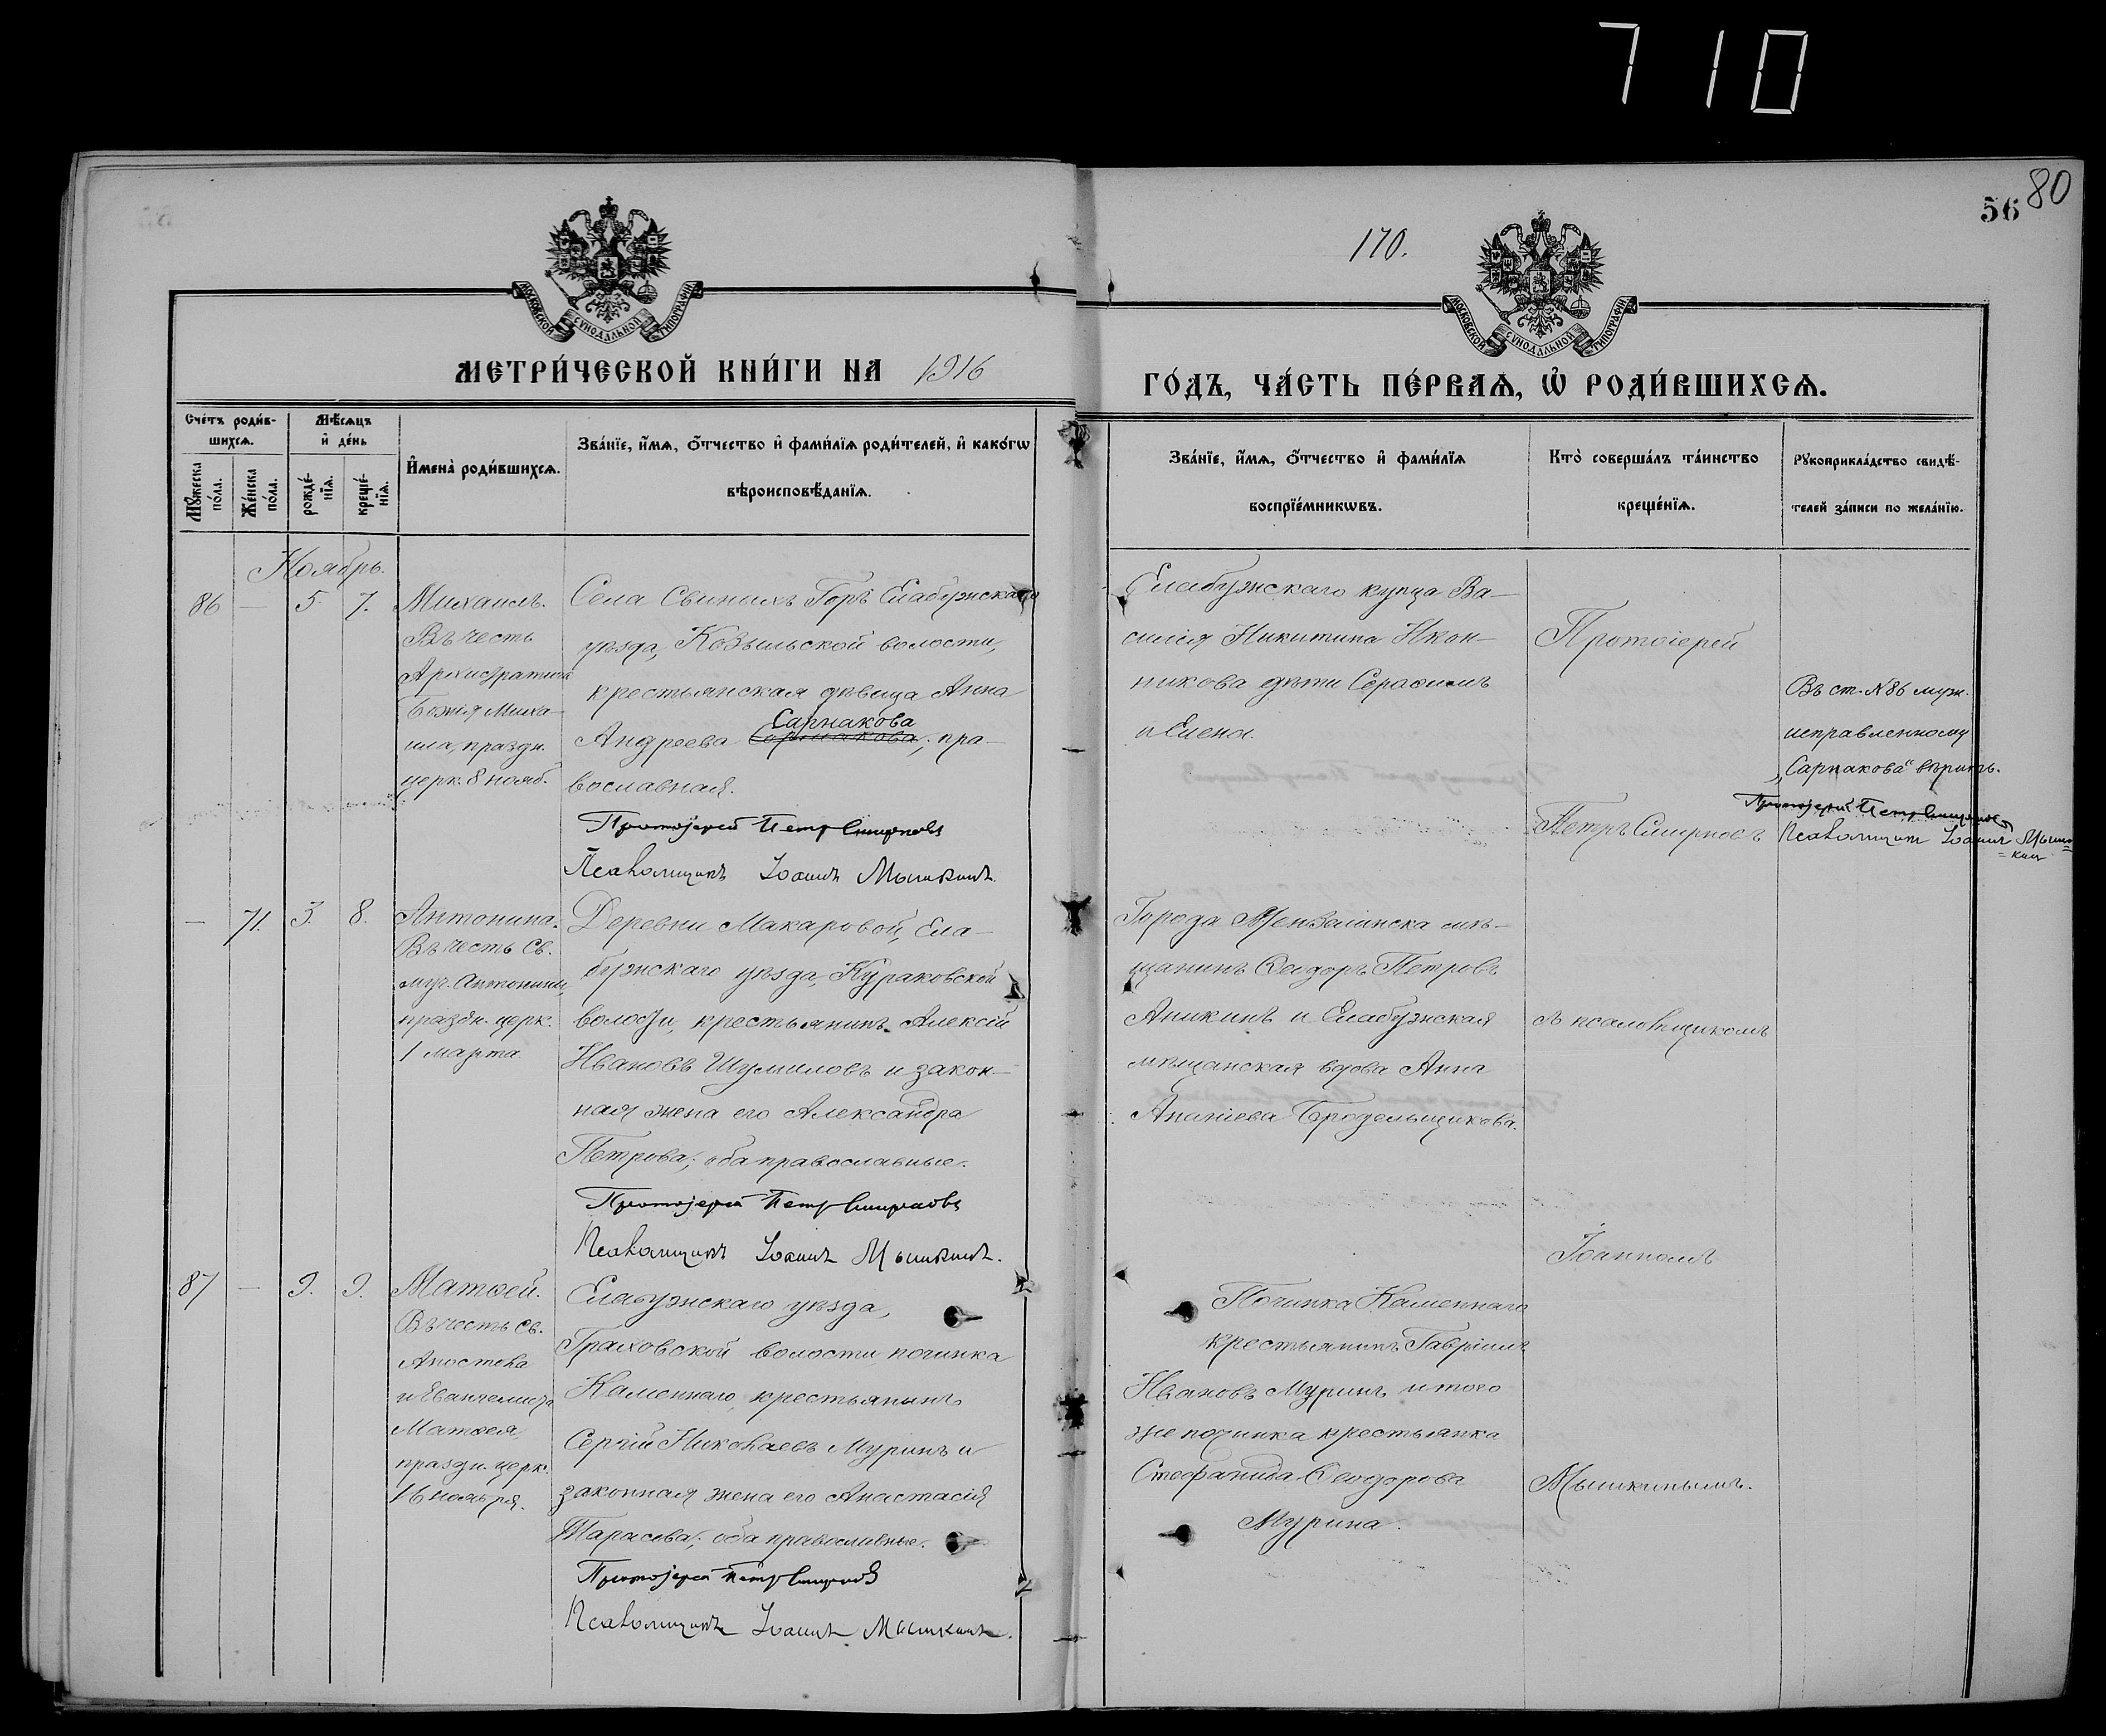 710
56
80
170.
МОСКОВСКОЙ СУНОДАЛЬНОЙ ТИПОГРАФІИ
МОСКОВСКОЙ СУНОДАЛЬНОЙ ТИПОГРАФІИ
МЕТРИ́ЧЕСКОЙ КНИ́ГИ НА 1916
ГО́ДЪ, ЧА́СТЬ ПЕ́РВАѦ, Ѡ҆ РОДИ́ВШИХСѦ.
Сче́тъ роди́в-
шихсѧ.
Мꙋ́жеска по́ла.
Же́нска по́ла.
Мѣ́сѧцъ
и҆ де́нь
рожде́-
нїѧ.
креще́-
нїѧ.
И҆мена̀ роди́вшихсѧ.
Зва́нїе, и҆́мѧ, ѻ҆́тчество и҆ фами́лїѧ роди́телей, и҆ како́гѡ
вѣроисповѣ́данїѧ.
Зва́нїе, и҆́мѧ, ѻ҆́тчество и҆ фами́лїѧ
воспрїе́мникѡвъ.
Кто̀ соверша́лъ та́инство
креще́нїѧ.
Рꙋкоприкла́дство свидѣ́-
телей за́писи по жела́нїю.
Ноябрь.
86 — 5. 7.
Михаилъ.
Въ честь
Архистратига
Божія Миха-
ила, праздн.
церк. 8 нояб.
Села Свиныхъ Горъ Елабужскаго
уѣзда, Козыльской волости,
крестьянская дѣвица Анна
Сарнакова
Андреева Сорнакова; пра-
вославная.
Протоіерей Петръ Смирновъ
Псаломщикъ Іоаннъ Мышкинъ.
Елабужскаго купца Ва-
силія Никитина Икон-
никова дѣти Серафимъ
и Елена.
Протоіерей
Петръ Смирновъ
Въ ст. № 86 муж.
исправленному
„Сарнакова" вѣрить.
Протоіерей Петръ Смирновъ
Псаломщикъ Іоаннъ Мыш=
=кин
— 71. 3. 8.
Антонина.
Въ честь Св.
муч. Антонины,
праздн. церк.
1 марта
Деревни Макаровой, Ела-
бужскаго уѣзда, Кураковской
волости, крестьянинъ Алексій
Ивановъ Шумиловъ и закон-
ная жена его Александра
Петрова; оба православные.
Протоіерей Петръ Смирновъ
Псаломщикъ Іоаннъ Мышкинъ.
Города Мензелинска мѣ-
щанинъ Ѳеодоръ Петровъ
Аникинъ и Елабужская
мѣщанская вдова Анна
Ананіева Бродельщикова.
съ псаломщикомъ
Іоанномъ
87 — 9. 9.
Матѳей.
Въ честь Св.
Апостола
и Евангелиста
Матѳея
праздн. церк.
16 ноября.
Елабужскаго уѣзда,
Граховской волости, починка
Каменнаго, крестьянинъ
Сергій Николаевъ Муринъ и
законная жена его Анастасія
Тарасова; оба православные.
Протоіерей Петръ Смирновъ
Псаломщикъ Іоаннъ Мышкинъ.
Починка Каменнаго
крестьянинъ Гавріилъ
Ивановъ Муринъ и того
же починка крестьянка
Стефанида Ѳеодорова
Мурина.
Мышкинымъ.